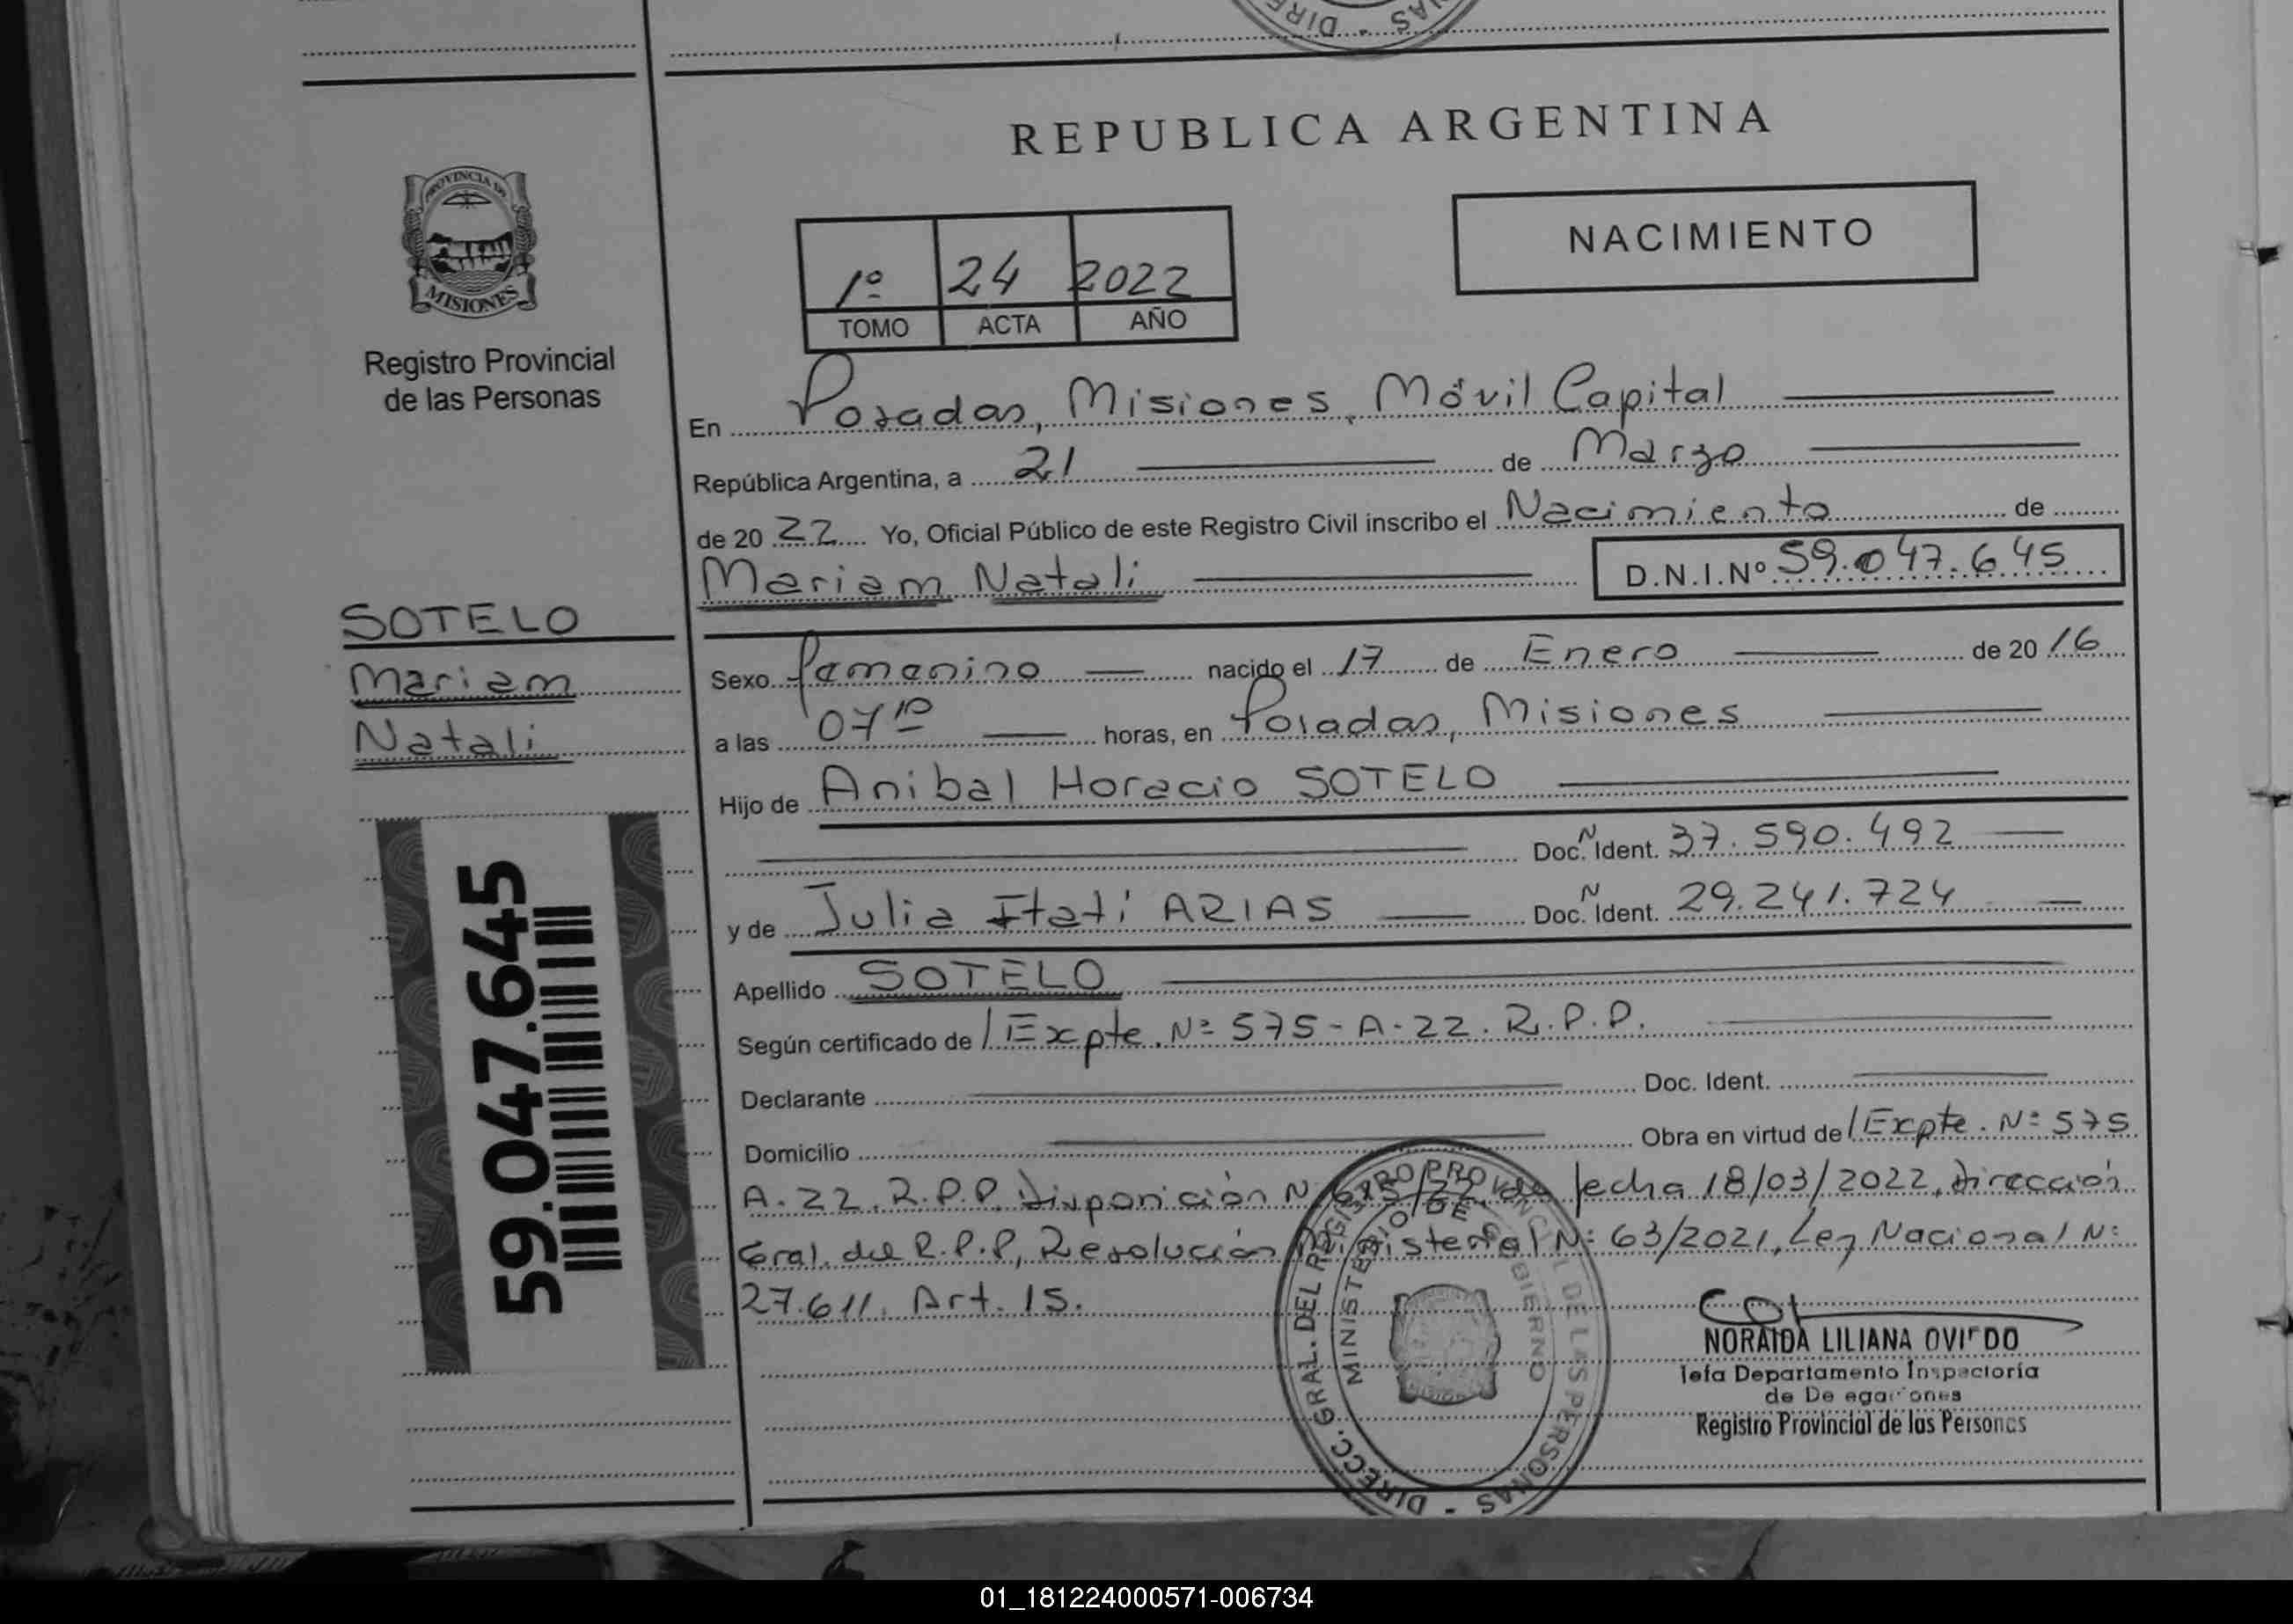 DIRE - NAS
REPUBLICA ARGENTINA
PROVINCIA DE
MISIONES
Registro Provincial
de las Personas
NACIMIENTO
1º 24 2022
TOMO ACTA AÑO
En Posadas, Misiones, Móvil Capital
República Argentina, a 21 de Marzo
de 20 22 Yo, Oficial Público de este Registro Civil inscribo el Nacimiento de
Mariam Natali D.N.I.Nº 59.047.645
SOTELO
Mariam
Natali
Sexo femenino nacido el 17 de Enero de 20 16
a las 07 10 horas, en Posadas, Misiones
Hijo de Anibal Horacio SOTELO
Doc. Ident. N 37.590.492
y de Julia Itati ARIAS Doc. Ident. N 29.241.724
Apellido SOTELO
Según certificado de / Expte. Nº 575-A-22. R.P.P.
Declarante Doc. Ident.
Domicilio Obra en virtud de / Expte. Nº 575
A-22. R.P.P. Disposición Nº /22, de fecha 18/03/2022, Dirección
Gral. del R.P.P, Resolución Ministerial Nº 63/2021, Ley Nacional Nº
27.611. Art. 15.
59.047.645
DIRECC. GRAL. DEL REGISTRO PROVINCIAL DE LAS PERSONAS -
MINISTERIO DE GOBIERNO
NORAIDA LILIANA OVIEDO
Jefa Departamento Inspectoría
de Delegaciones
Registro Provincial de las Personas
01_181224000571-006734